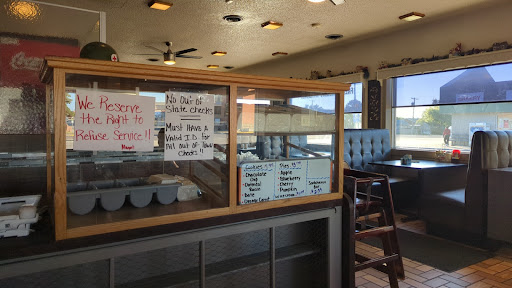 Coca-Cola
We Reserve
the Right to
Refuse Service!!
No Out Of
State Checks
Must Have A
Valid I.D. For
all out of Town
Checks!!
Cookies
Chocolate
Chip
Oatmeal
Raisin
Pies
Apple
Blueberry
Cherry
Pumpkin